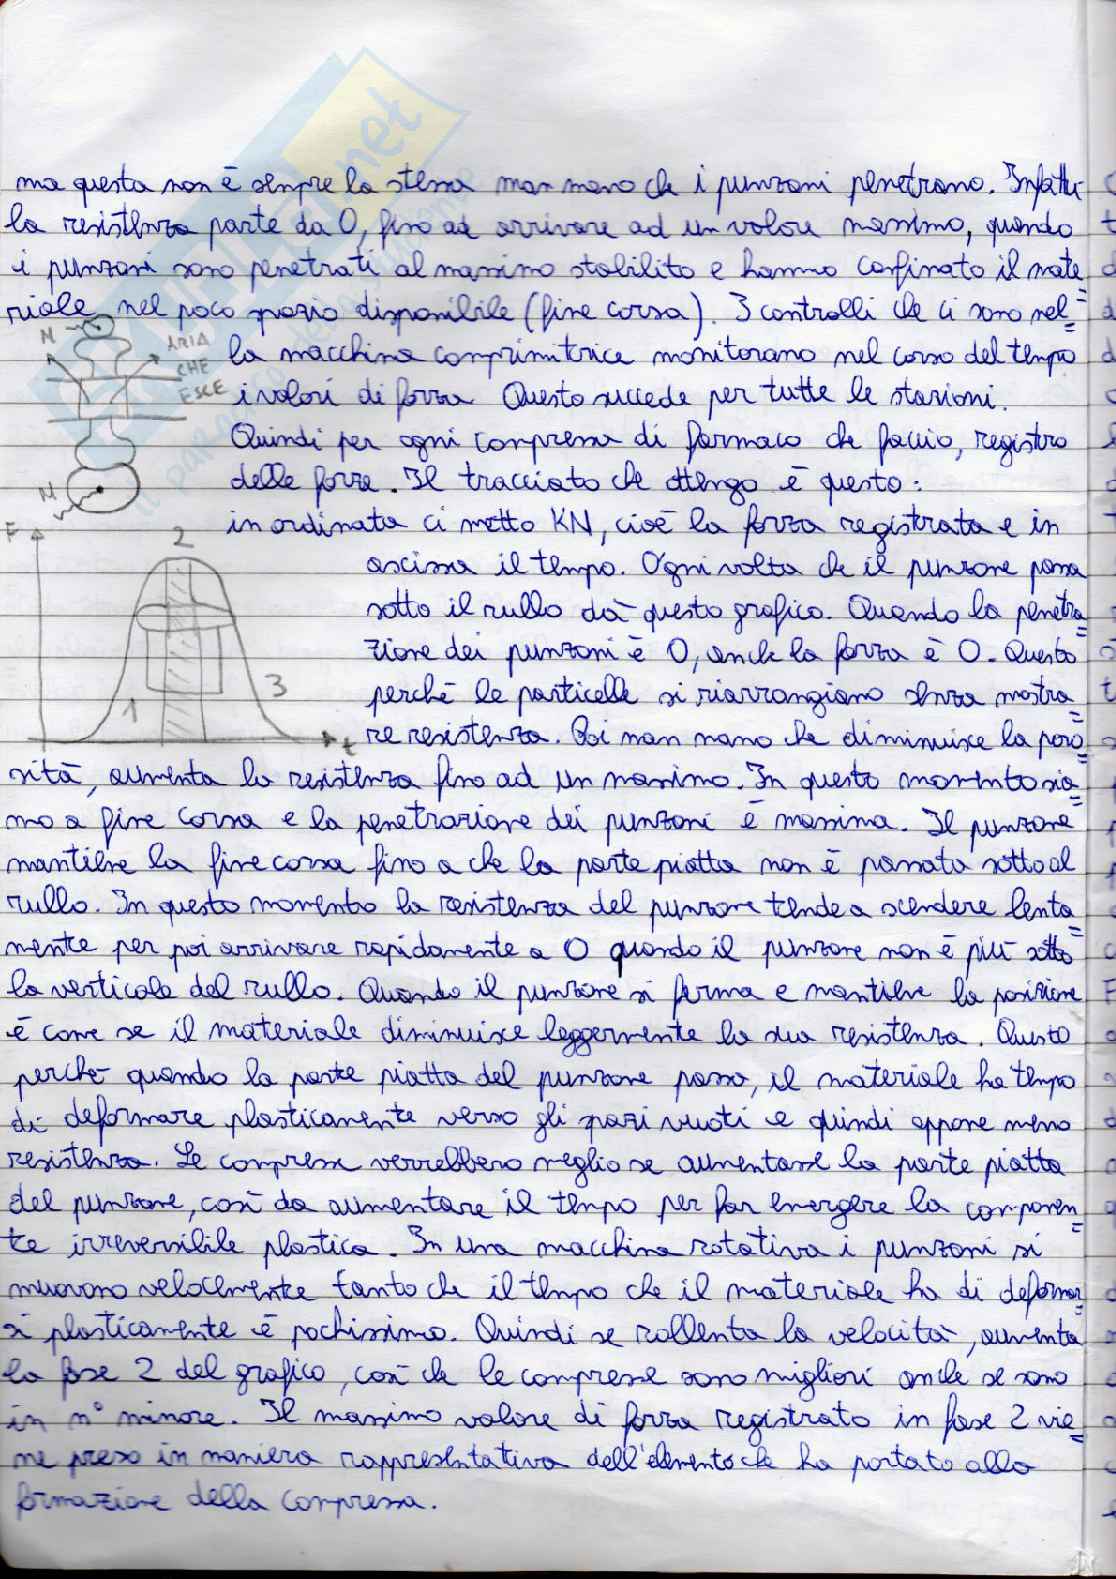 ma questa non è sempre la stessa man mano che i punzoni penetrano. Infatti
la resistenza parte da 0, fino ad arrivare ad un valore massimo, quando
i punzoni sono penetrati al massimo stabilito e hanno confinato il mate=
riale nel poco spazio disponibile (fine corsa). I controlli che ci sono nel=
la macchina comprimitrice monitorano nel corso del tempo
i valori di forza Questo succede per tutte le stazioni.
Quindi per ogni compressa di farmaco che faccio, registro
delle forze. Il tracciato che ottengo è questo:
in ordinata ci metto KN, cioè la forza registrata e in
ascissa il tempo. Ogni volta che il punzone passa
sotto il rullo dà questo grafico. Quando la penetra=
zione dei punzoni è 0, anche la forza è 0. Questo
perché le particelle si riarrangiano senza mostra=
re resistenza. Poi man mano che diminuisce la poro=
sità, aumenta la resistenza fino ad un massimo. In questo momento sia=
mo a fine corsa e la penetrazione dei punzoni è massima. Il punzone
mantiene la fine corsa fino a che la parte piatta non è passata sotto al
rullo. In questo momento la resistenza del punzone tende a scendere lenta=
mente per poi arrivare rapidamente a 0 quando il punzone non è più sotto
la verticale del rullo. Quando il punzone si ferma e mantiene la posizione
è come se il materiale diminuisce leggermente la sua resistenza. Questo
perché quando la parte piatta del punzone passa, il materiale ha tempo
di deformare plasticamente verso gli spazi vuoti e quindi oppone meno
resistenza. Le compresse verrebbero meglio se aumentasse la parte piatta
del punzone, così da aumentare il tempo per far emergere la componen=
te irreversibile plastica. In una macchina rotativa i punzoni si
muovono velocemente tanto che il tempo che il materiale ha di deformar=
si plasticamente è pochissimo. Quindi se rallenta la velocità, aumenta
la fase 2 del grafico, così che le compresse sono migliori anche se sono
in n° minore. Il massimo valore di forza registrato in fase 2 vie=
ne preso in maniera rappresentativa dell'elemento che ha portato alla
formazione della compressa.
N
ARIA
CHE
ESCE
N
F
2
1
3
t
.net